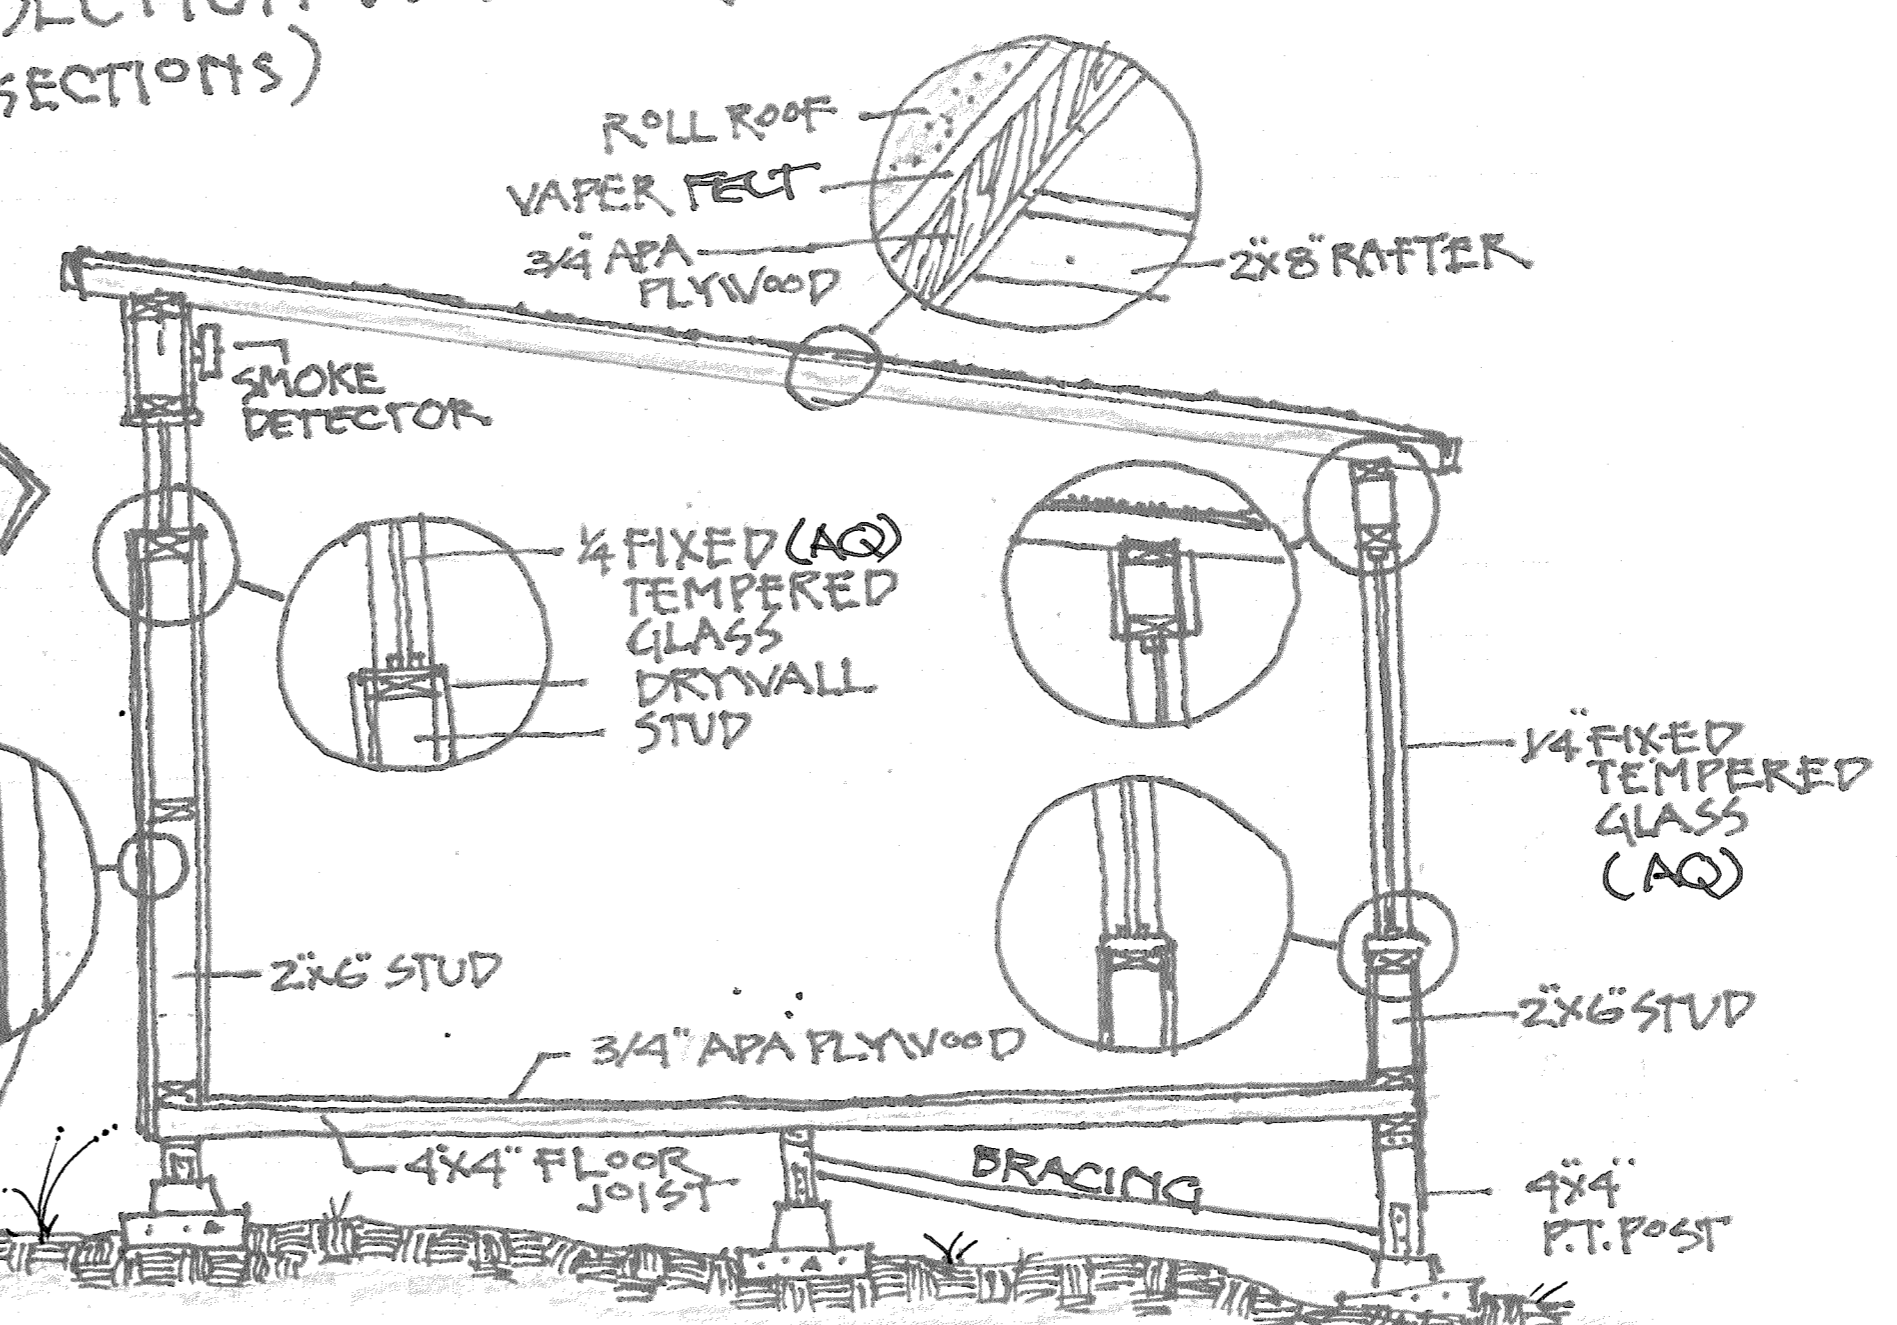 SECTION
SECTIONS)
ROLL ROOF
VAPER FELT
3/4" APA
PLYWOOD
2"x8" RAFTER
SMOKE
DETECTOR
1/4 FIXED (AQ)
TEMPERED
GLASS
DRYWALL
STUD
1/4" FIXED
TEMPERED
GLASS
(AQ)
2"x6" STUD
2"x6" STUD
3/4" APA PLYWOOD
4"x4" FLOOR
JOIST
BRACING
4"x4"
P.T. POST